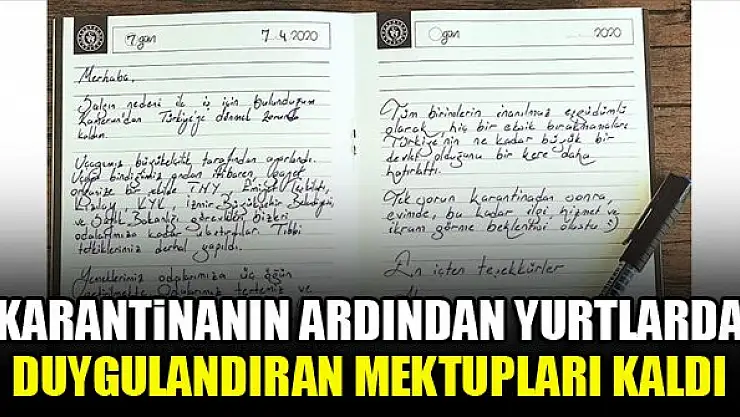 7. gün 7.4.2020
Merhaba,
Salgın nedeni ile iş için bulunduğum
Kamerun'dan Türkiye'ye dönmek zorunda
kaldım.
Uçağımız büyükelçilik tarafından ayarlandı.
Uçağa bindiğimiz andan itibaren, gayet
organize bir şekilde THY, Emniyet Teşkilatı,
Kızılay, KYK, İzmir Büyükşehir Belediyesi,
ve Sağlık Bakanlığı görevlileri bizleri
odalarımıza kadar ulaştırdılar. Tıbbi
tetkiklerimiz derhal yapıldı.
Yemeklerimiz odalarımıza üç öğün
tertemiz ve
gün 2020
Tüm birimlerin inanılmaz eşgüdümlü
olarak, hiç bir eksik bırakmamaları
Türkiye'nin ne kadar büyük bir
devlet olduğunu bir kere daha
hatırlattı.
Tek sorun karantinadan sonra,
evimde, bu kadar ilgi, hizmet ve
ikram görme beklentisi oluştu :)
En içten teşekkürler
KARANTİNANIN ARDINDAN YURTLARDA
DUYGULANDIRAN MEKTUPLARI KALDI